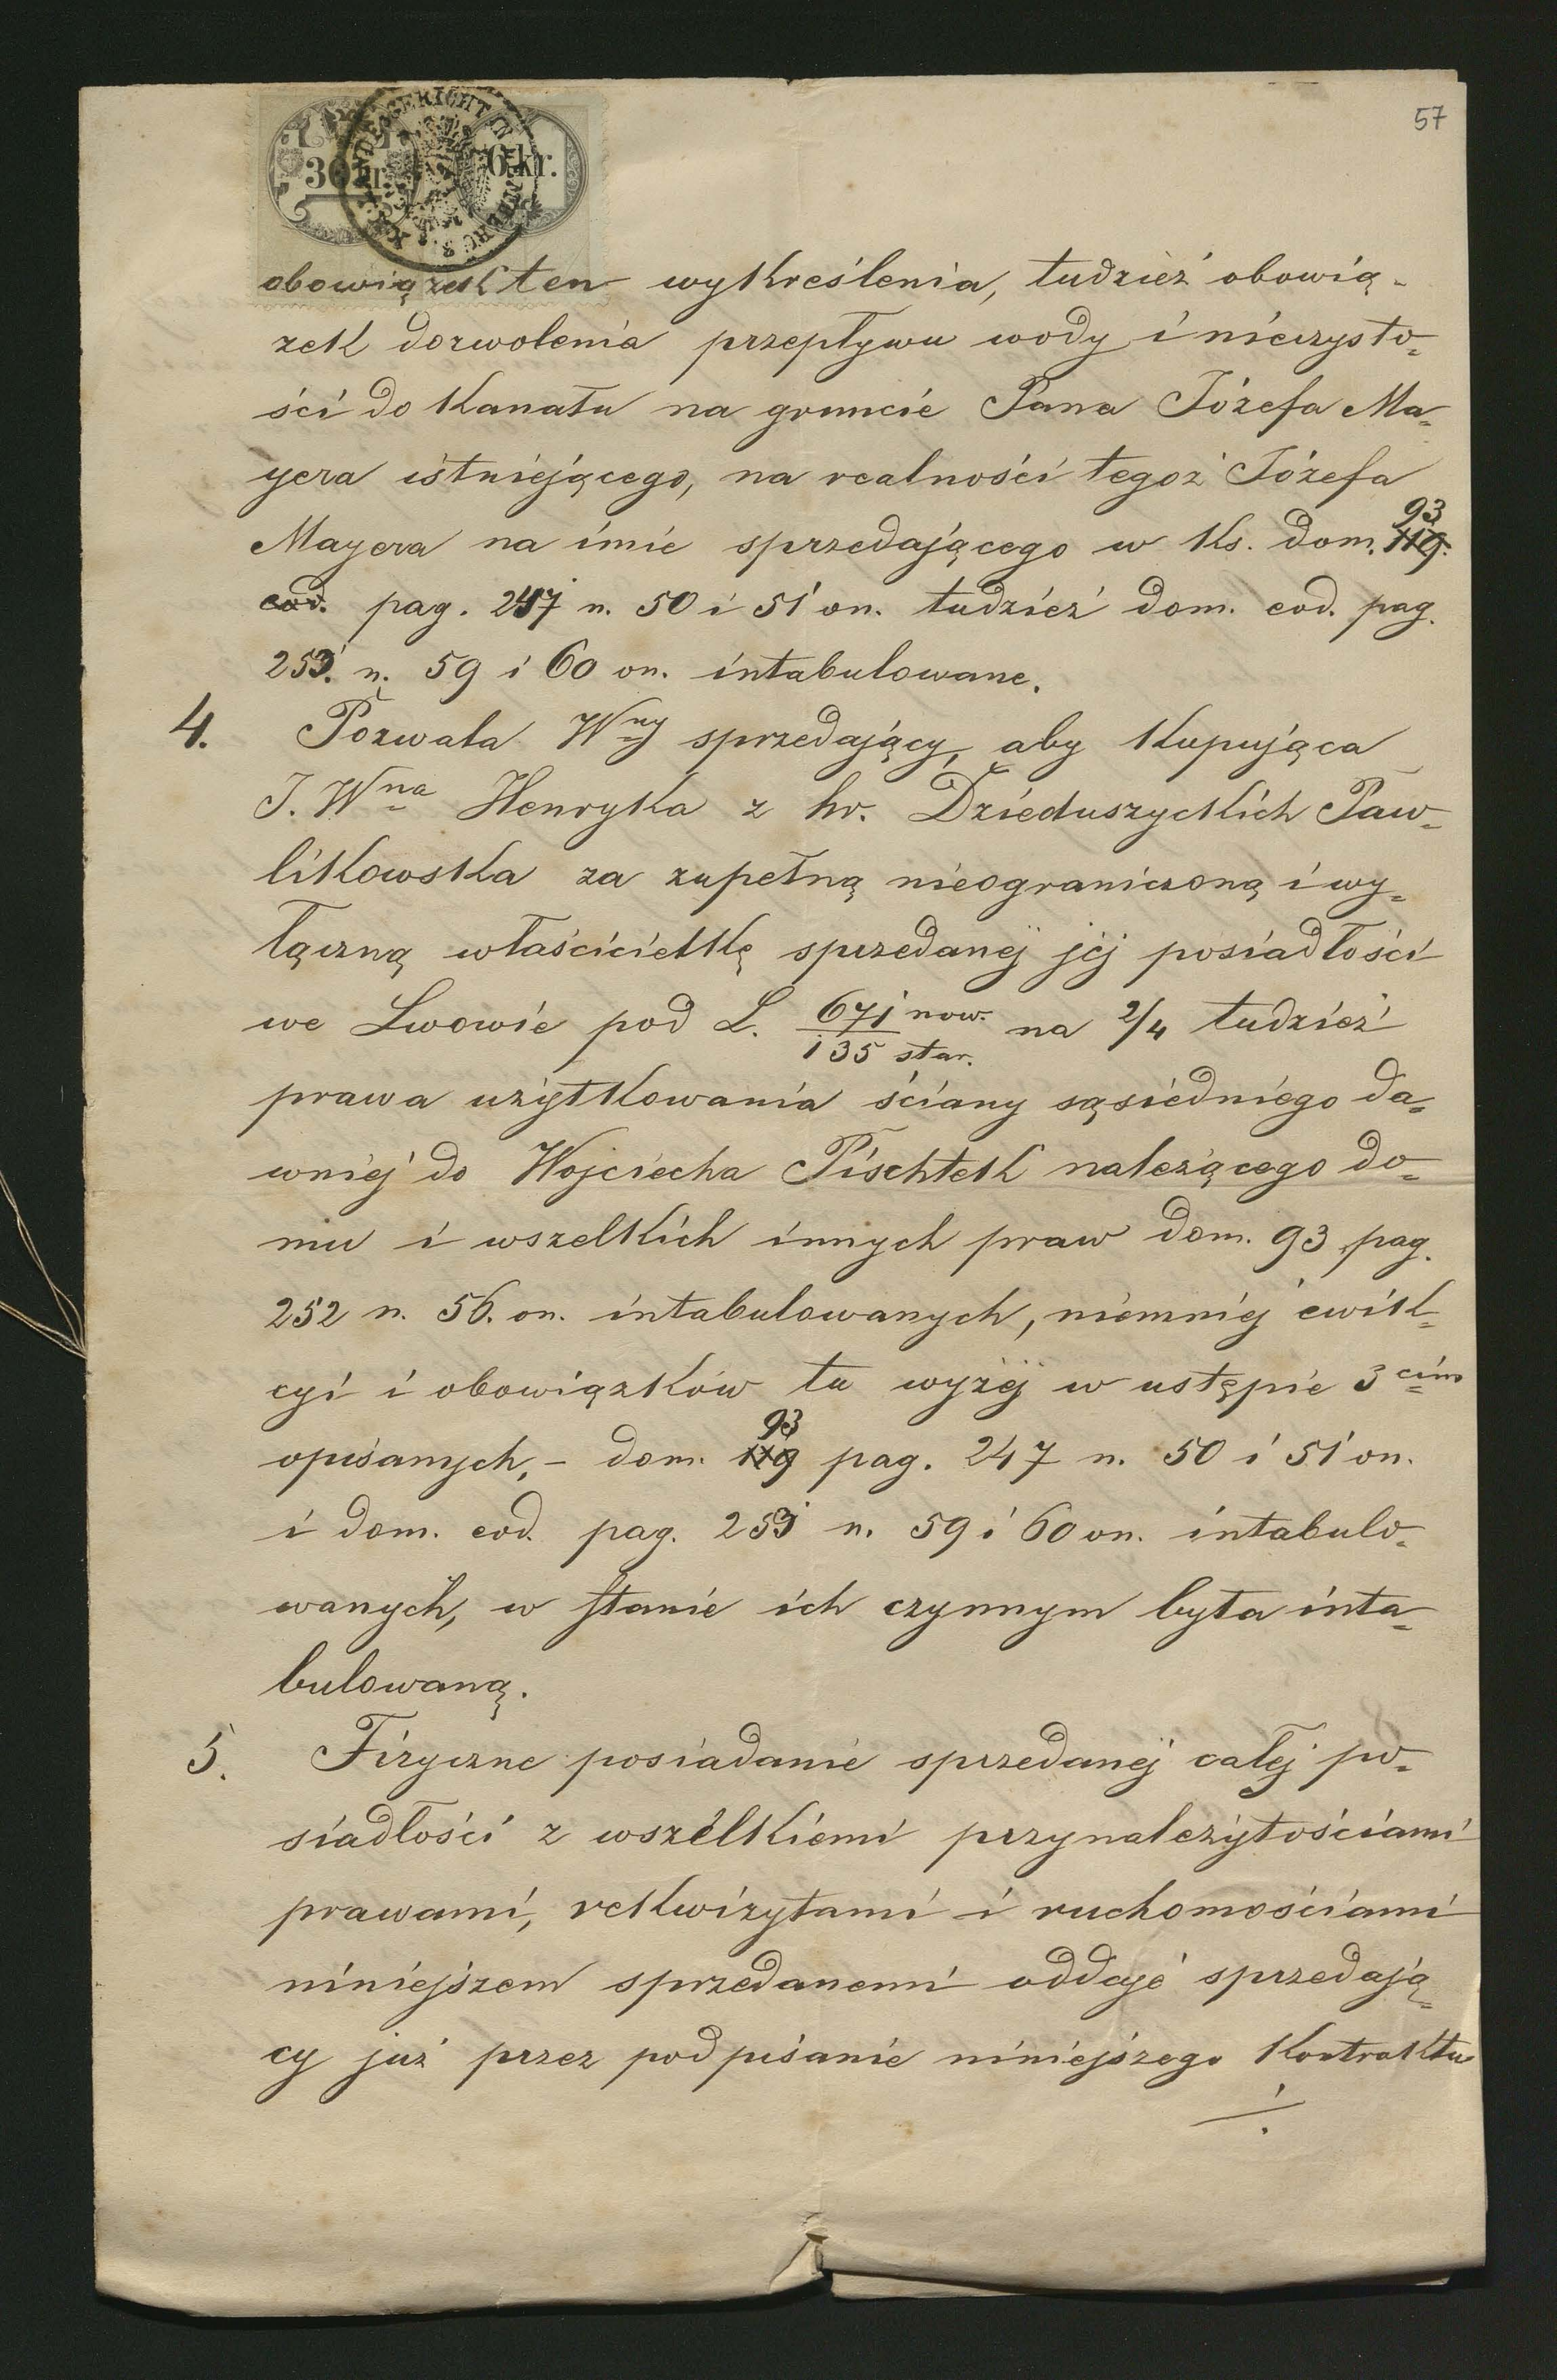 57
36 kr.
6 kr.
obowiązek ten wykreślenia, tudzież obowią-
zek dozwolenia przepływu wody i nieczysto-
ści do kanału na gruncie Pana Józefa Ma-
yera istniejącego, na realności tegoż Józefa
Mayera na imie sprzedającego w ks. dom. 119. 93
eod. pag. 247 n. 50 i 51 on. tudzież dom. eod. pag.
253. n. 59 i 60 on. intabulowane.
4. Pozwala Wny sprzedający, aby kupująca
J. Wna Henryka z hr. Dzieduszyckich Paw-
likowska za zupełną nieograniczoną i wy-
łączną właścicielkę sprzedanej jej posiadłości
we Lwowie pod L. 671 now. / 135 star. na 2/4 tudzież
prawa użytkowania ściany sąsiedniego da-
wniej do Wojciecha Pischtek należącego do-
mu i wszelkich innych praw dom. 93 pag.
252 n. 56. on. intabulowanych, niemniej ewik-
cyi i obowiązków tu wyżej w ustępie 3cim
opisanych, – dom. 119 93 pag. 247 n. 50 i 51 on.
i dom. eod. pag. 253 n. 59 i 60 on. intabulo-
wanych, w stanie ich czynnym była inta-
bulowaną.
5. Fizyczne posiadanie sprzedanej całej po-
siadłości z wszelkiemi przynależytościami
prawami, rekwizytami i ruchomościami
niniejszem sprzedanemi oddaje sprzedają-
cy już przez podpisanie niniejszego kontraktu
./.